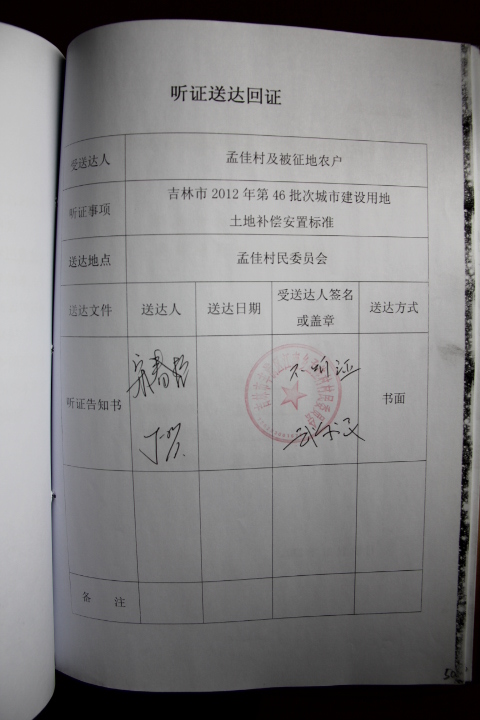 听证送达回证
受送达人 孟佳村及被征地农户
听证事项 吉林市 2012 年第 46 批次城市建设用地
土地补偿安置标准
送达地点 孟佳村民委员会
送达文件 送达人 送达日期 受送达人签名
或盖章 送达方式
不听证
听证告知书 书面
备 注
50